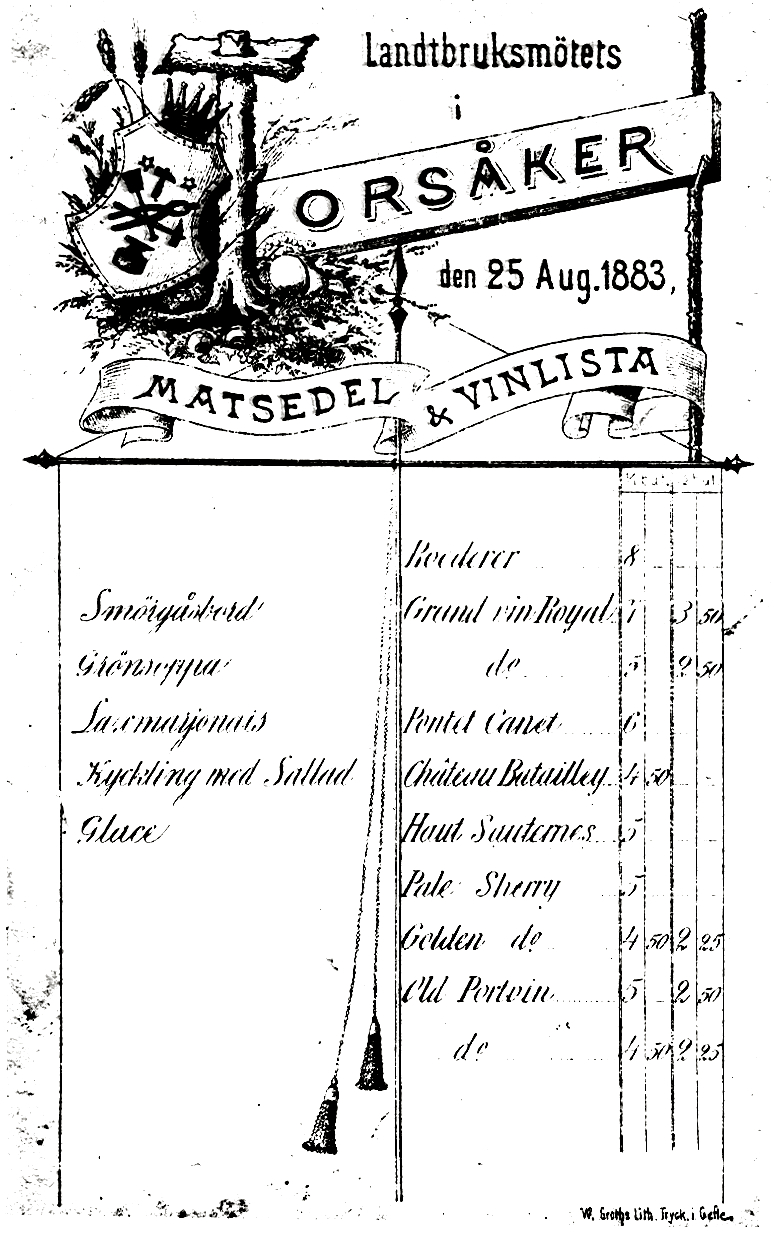 Landtbruksmötets
i
TORSÅKER
den 25 Aug. 1883,
MATSEDEL & VINLISTA
Smörgåsbord
Grönsoppa
Laxmajonais
Kyckling med Sallad
Glace
Roederer 8
Grand vin Royal 7 3 50
do 5 2 50
Pontet Canet 6
Château Batailley 4 50
Haut Sauternes 5
Pale Sherry 5
Golden do 4 50 2 25
Old Portvin 5 2 50
do 4 50 2 25
W. Groths Lith. Tryck. i Gefle.